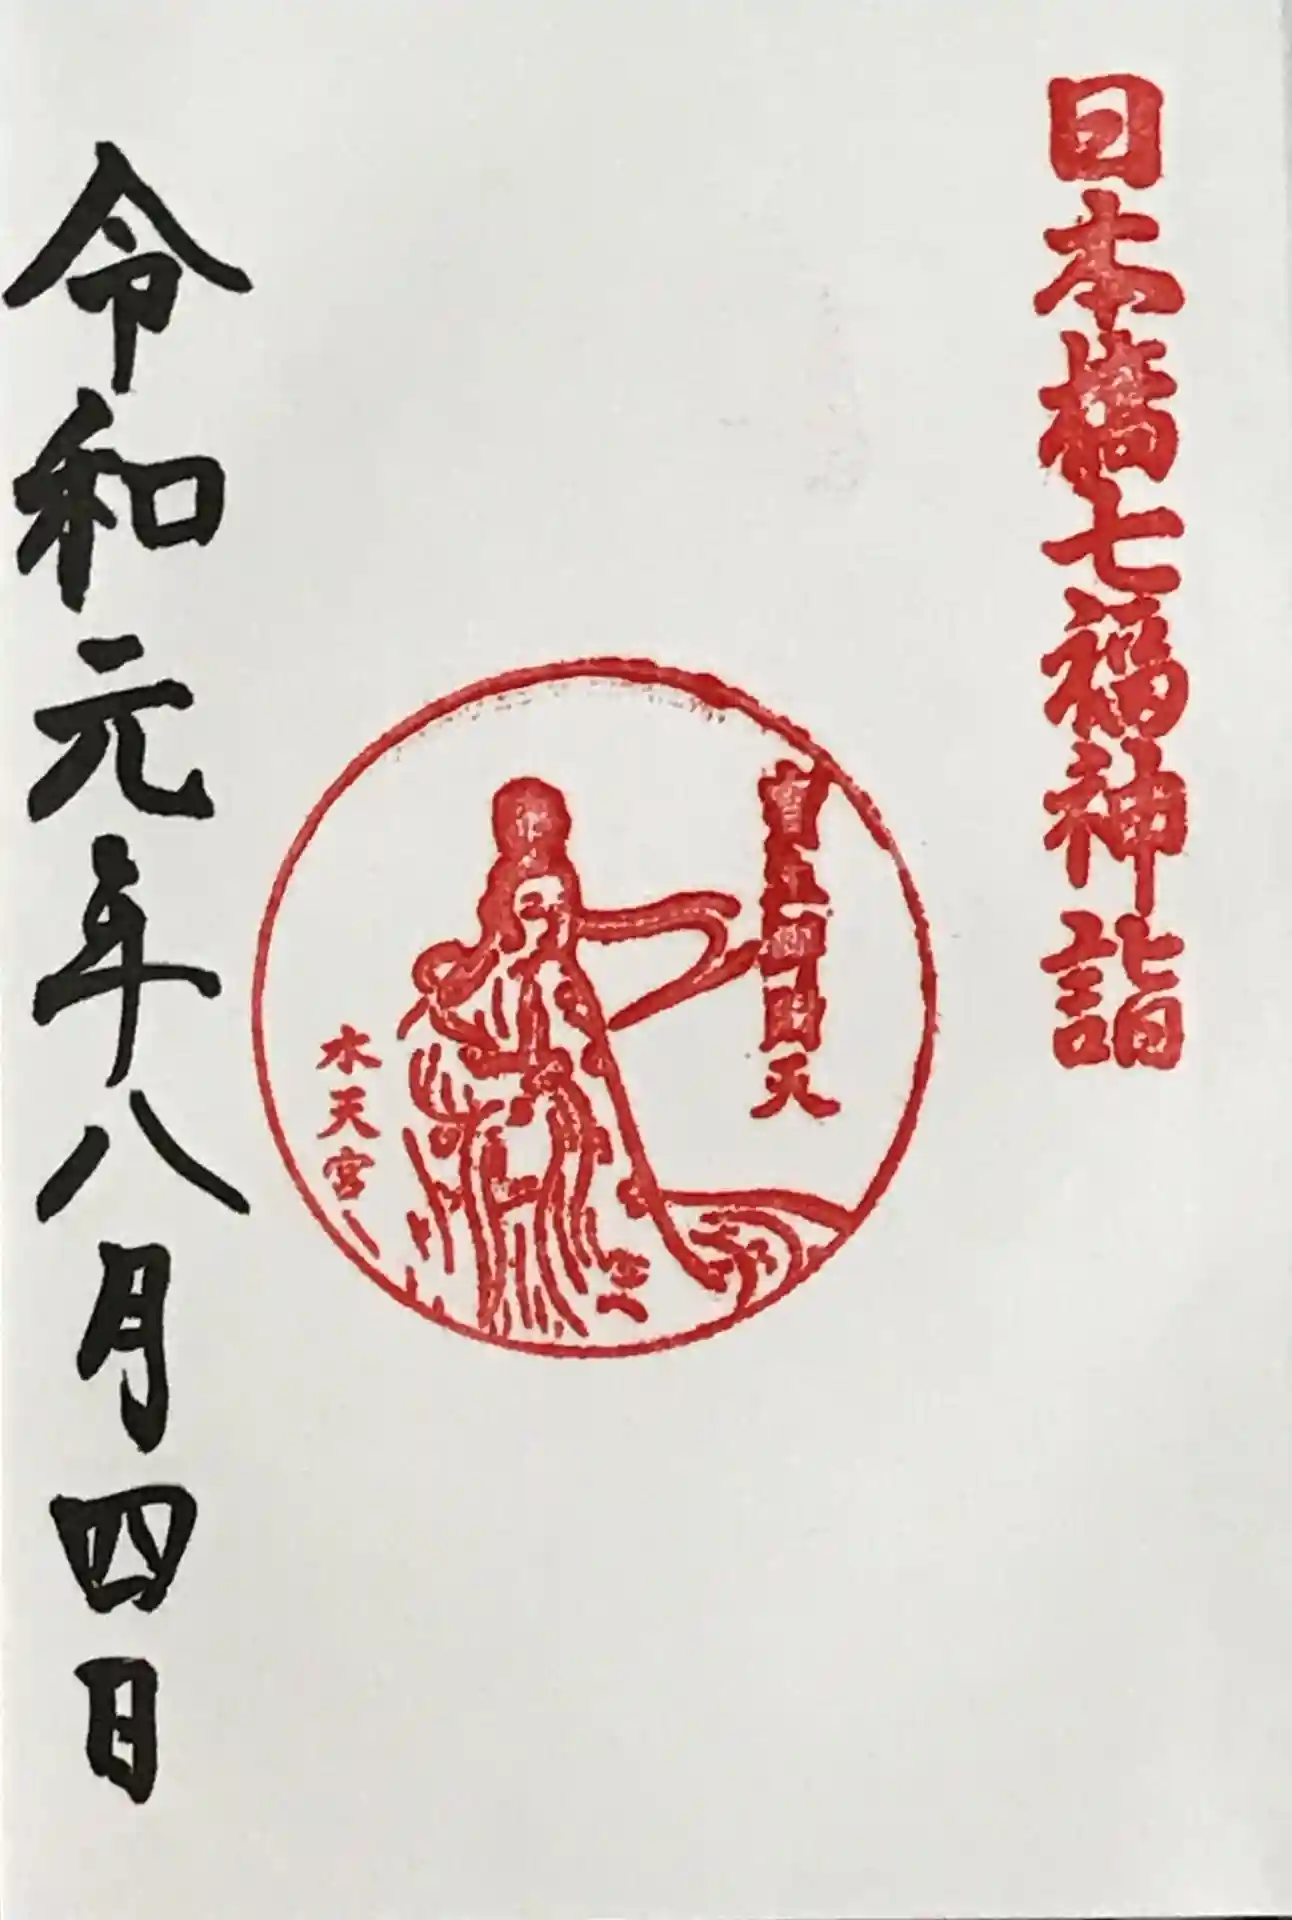 日本橋七福神詣
寳生辨財天
水天宮
令和元年八月四日